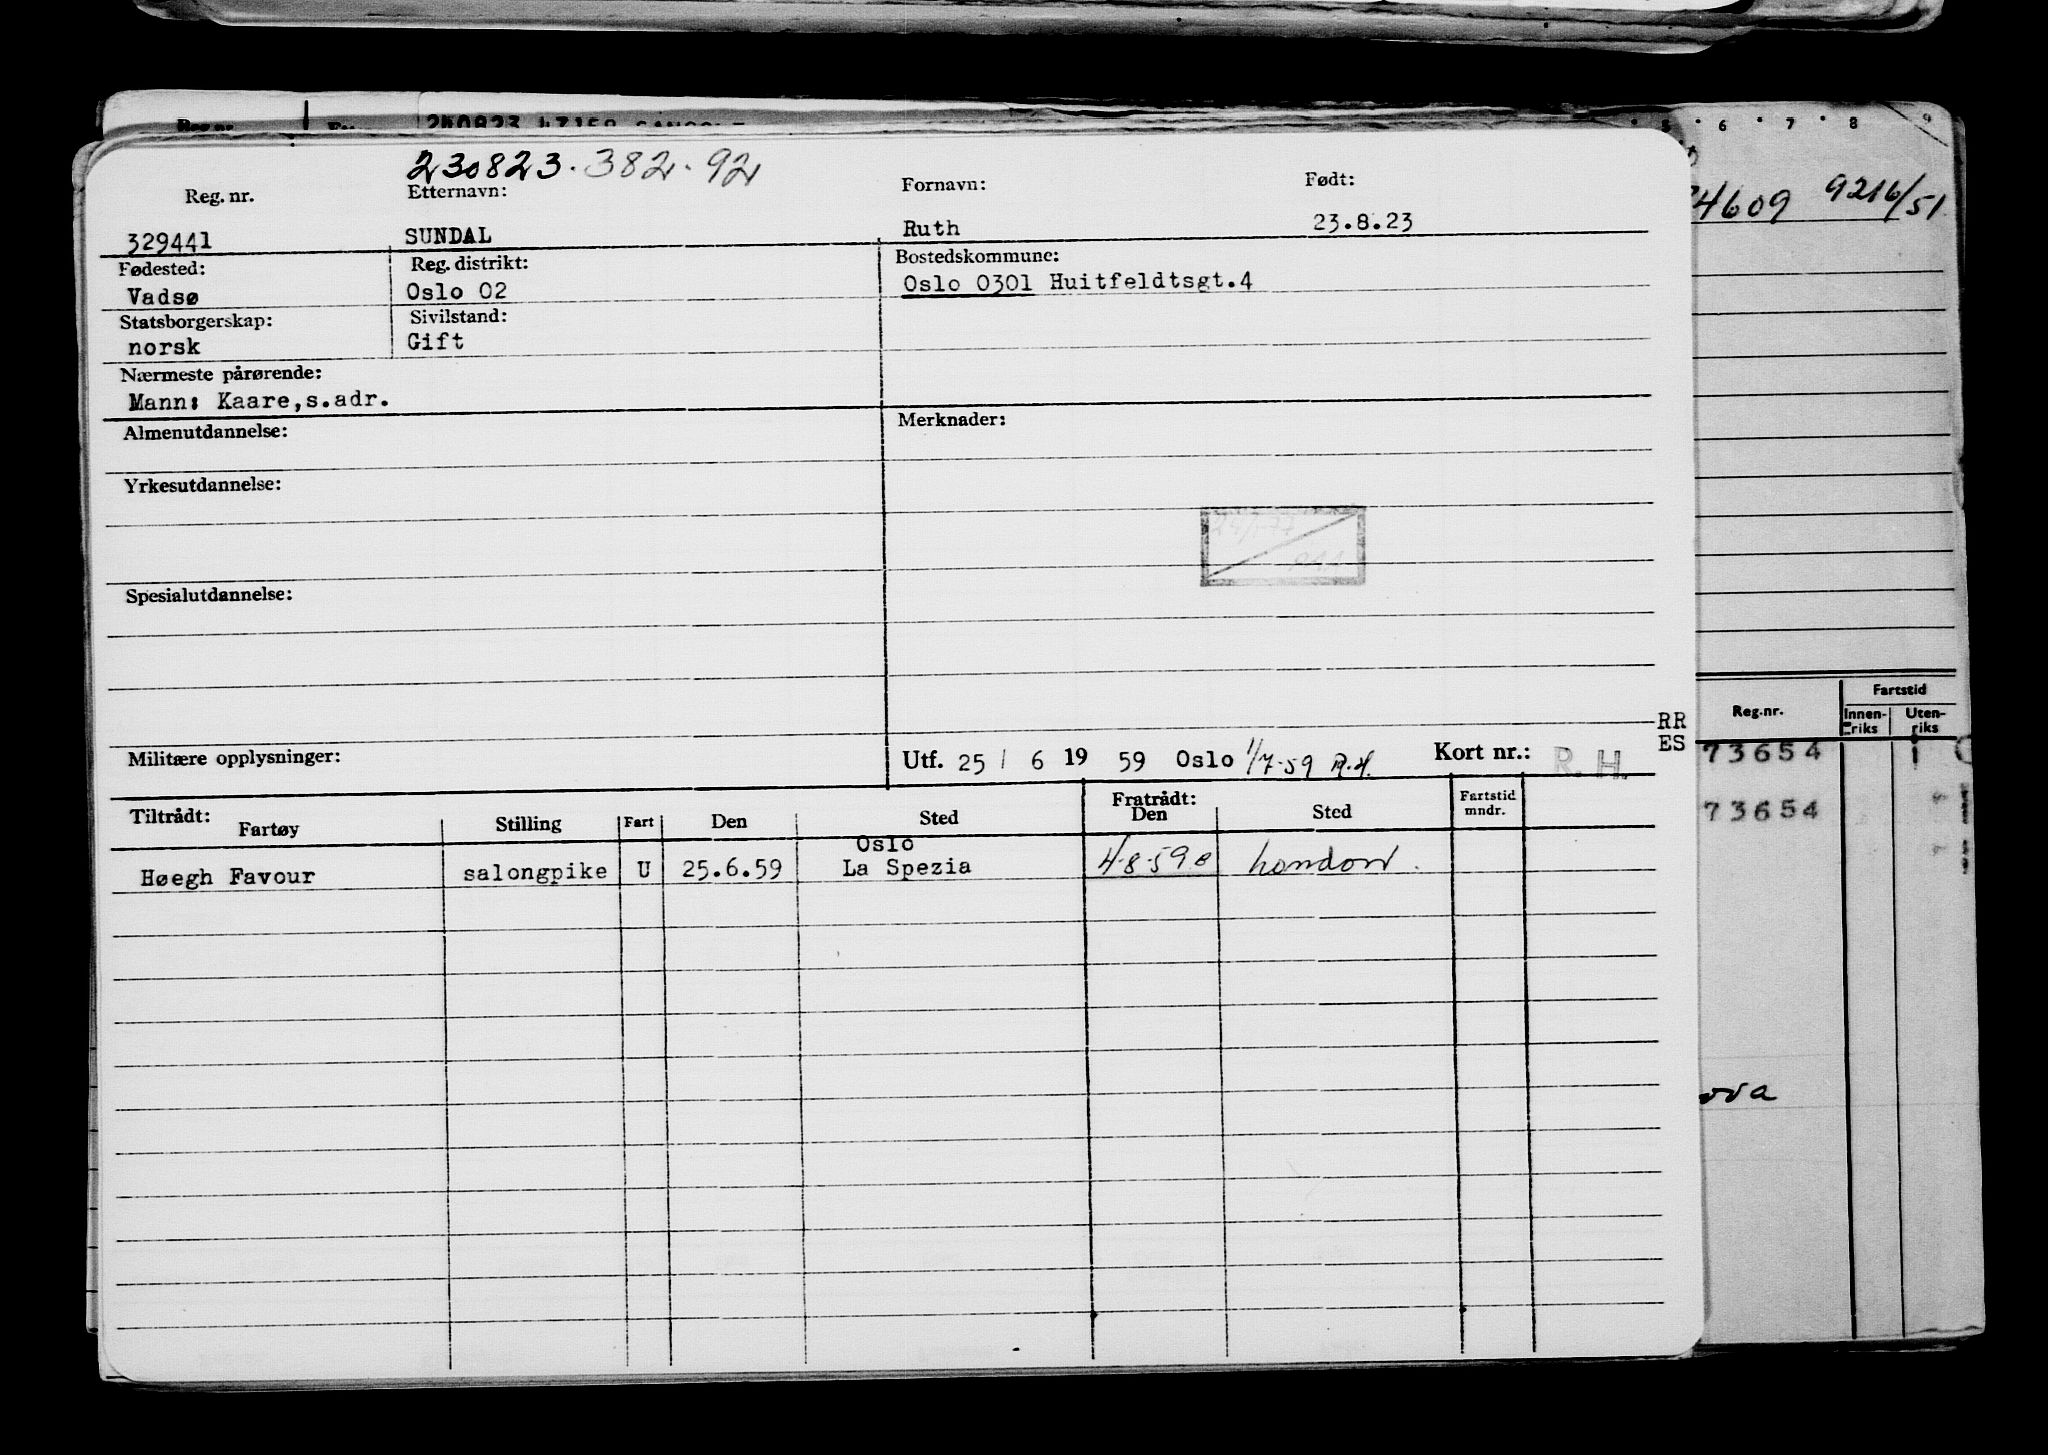 240823
5 6 7 8 9
230823.382.92
Reg. nr. Etternavn: Fornavn: Født:
4609 9216/51
329441 SUNDAL Ruth 23.8.23
Fødested: Reg. distrikt: Bostedskommune:
Vadsø Oslo 02 Oslo 0301 Huitfeldtsgt.4
Statsborgerskap: Sivilstand:
norsk Gift
Nærmeste pårørende:
Mann: Kaare,s.adr.
Almenutdannelse: Merknader:
Yrkesutdannelse:
Spesialutdannelse:
Reg.nr. Fartstid
Innen-riks Uten-riks
RR
ES
Militære opplysninger: Utf. 25 / 6 19 59 Oslo 1/7-59 R.H. Kort nr.: R. H.
73654
73654
Tiltrådt: Fratrådt:
Fartøy Stilling Fart Den Sted Den Sted Fartstid mndr.
Oslo
Høegh Favour salongpike U 25.6.59 La Spezia 4-8-59 London.